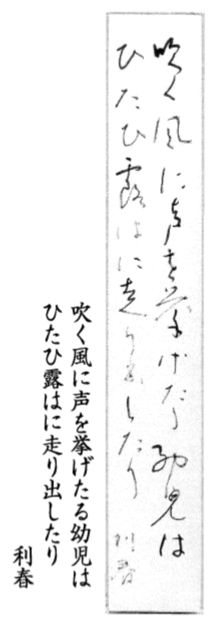 吹く風に声を挙げたる幼児は
ひたひ露はに走り出したり
利春
吹く風に声を挙げたる幼児は
ひたひ露はに走り出したり
利春